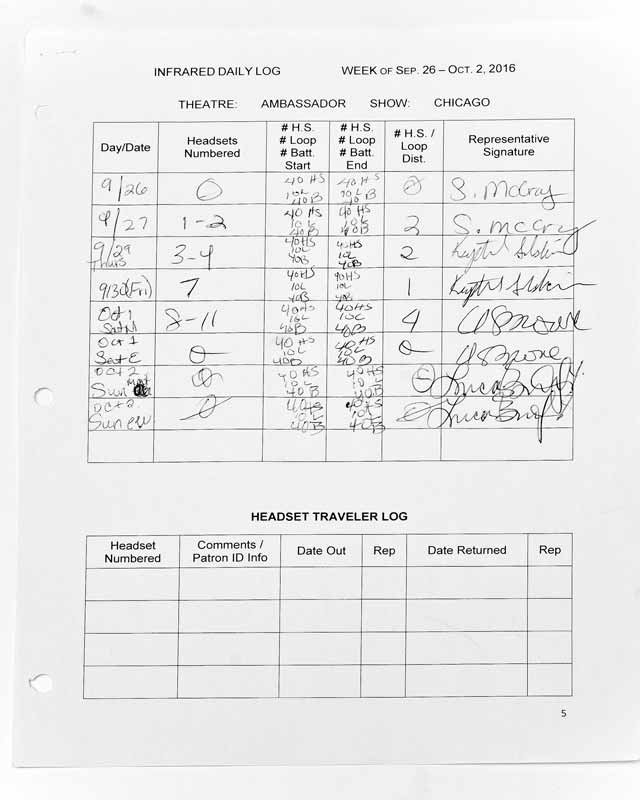 INFRARED DAILY LOG WEEK OF SEP. 26 – OCT. 2, 2016
THEATRE: AMBASSADOR SHOW: CHICAGO
Day/Date Headsets Numbered # H.S. # Loop # Batt. Start # H.S. # Loop # Batt. End # H.S. / Loop Dist. Representative Signature
9/26 0 40 HS 10L 40B 40 HS 10L 40B 0 S. McCray
9/27 1-2 40 HS 10L 40B 40 HS 10L 40B 2 S. McCray
9/29 Thurs 3-4 40HS 10L 40B 40HS 10L 40B 2
9/30(Fri) 7 40HS 10L 40B 40HS 10L 40B 1
Oct 1 Sat M 8-11 40HS 10L 40B 40HS 10L 40B 4
Oct 1 Sat E 0 40 HS 10L 40B 40HS 10L 40B 0
Oct 2 Sun Mat 0 40HS 10L 40B 40HS 10L 40B 0
Oct 2 Sun eve 0 40HS 10L 40B 40HS 10L 40B 0
HEADSET TRAVELER LOG
Headset Numbered Comments / Patron ID Info Date Out Rep Date Returned Rep
5